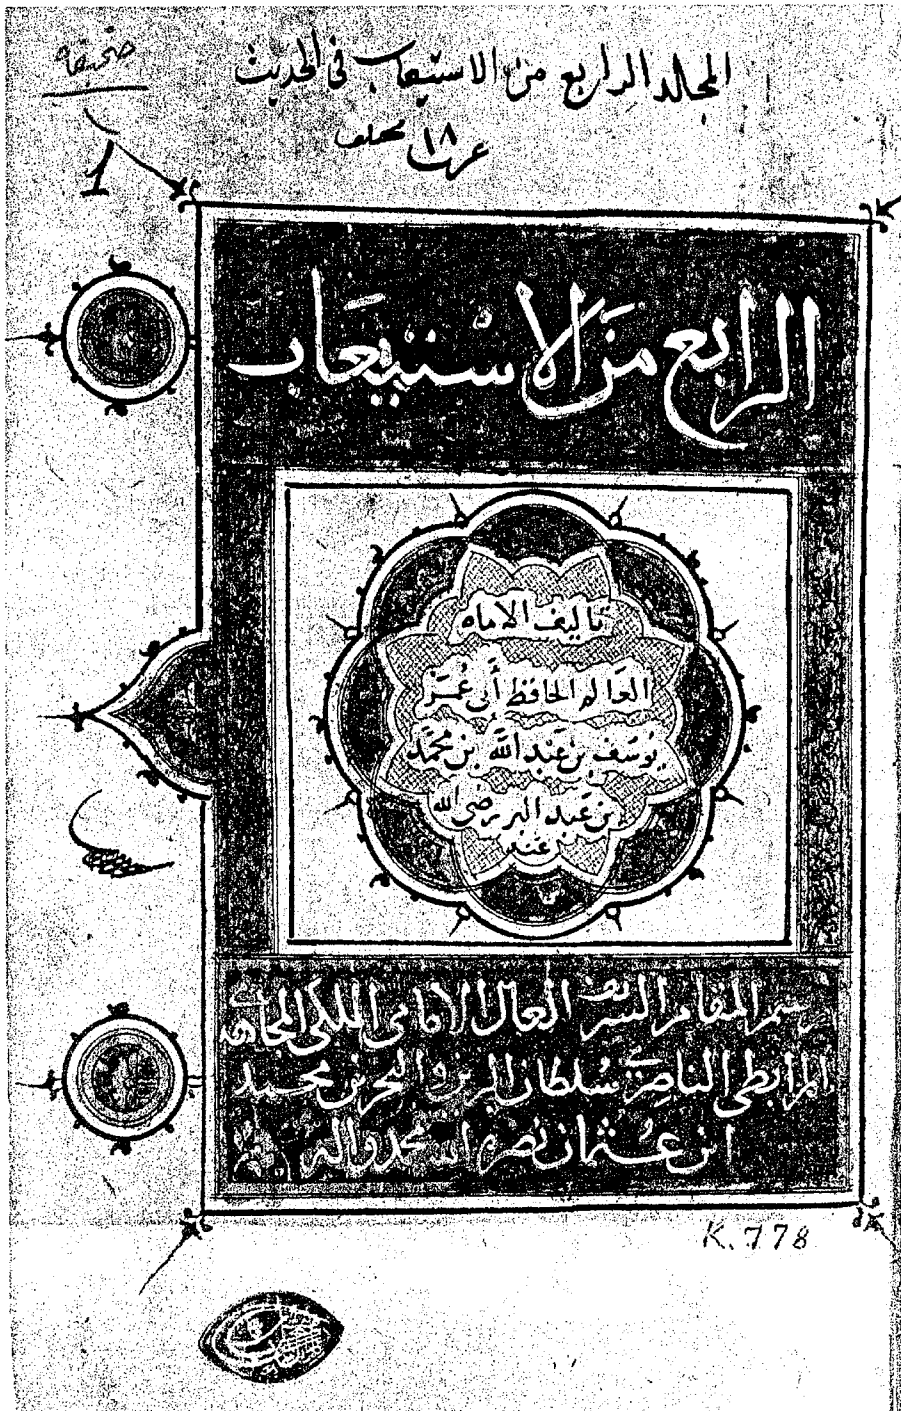 صحيفة
1
المجلد الرابع من الاستيعاب في الحديث
١٨
الرابع من الاستيعاب
تأليف الإمام
العالم الحافظ أبي عُمَر
يوسف بن عبد الله بن محمد
بن عبد البر رضي الله
عنه
برسم المقام الشريف العالي الإمامي الملكي المجاهدي
المرابطي الناصري سلطان البرين والبحرين محمد
ابن عثمان نصره الله بمحمد وآله
K. 778